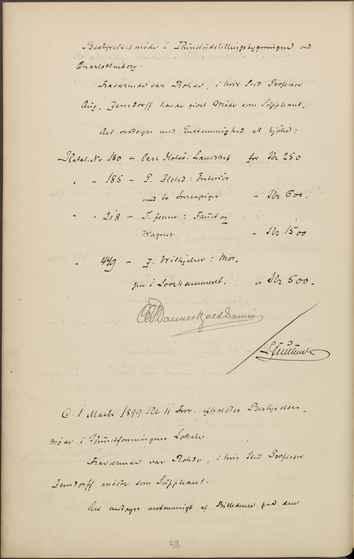 Bestyrelsesmøde i Kunstudstillingsbygningen ved
Charlottenborg.
Fraværende var Rohde, i hvis Sted Professor
Aug. Jerndorff havde givet Møde som Suppleant.
Det vedtoges med Enstemmighed at kjøbe:
Katal. No 180 - Carl Holsø: for Kr 250
" - 185 - P. Ilsted: Interiør
med to Smaapiger - Kr 600.
" - 218 - Faust og
Wagner - Kr 1500
" - 449 - J. Wilhjelm:
" Kr 500.
O. 1 Marts 1899 Kl 11 Form. holdtes Bestyrelses-
møde i Kunstforeningens Lokale.
Fraværende var Rohde, i hvis Sted Professor
Jerndorff mødte som Suppleant.
Det vedtoges enstemmigt af Billederne paa den